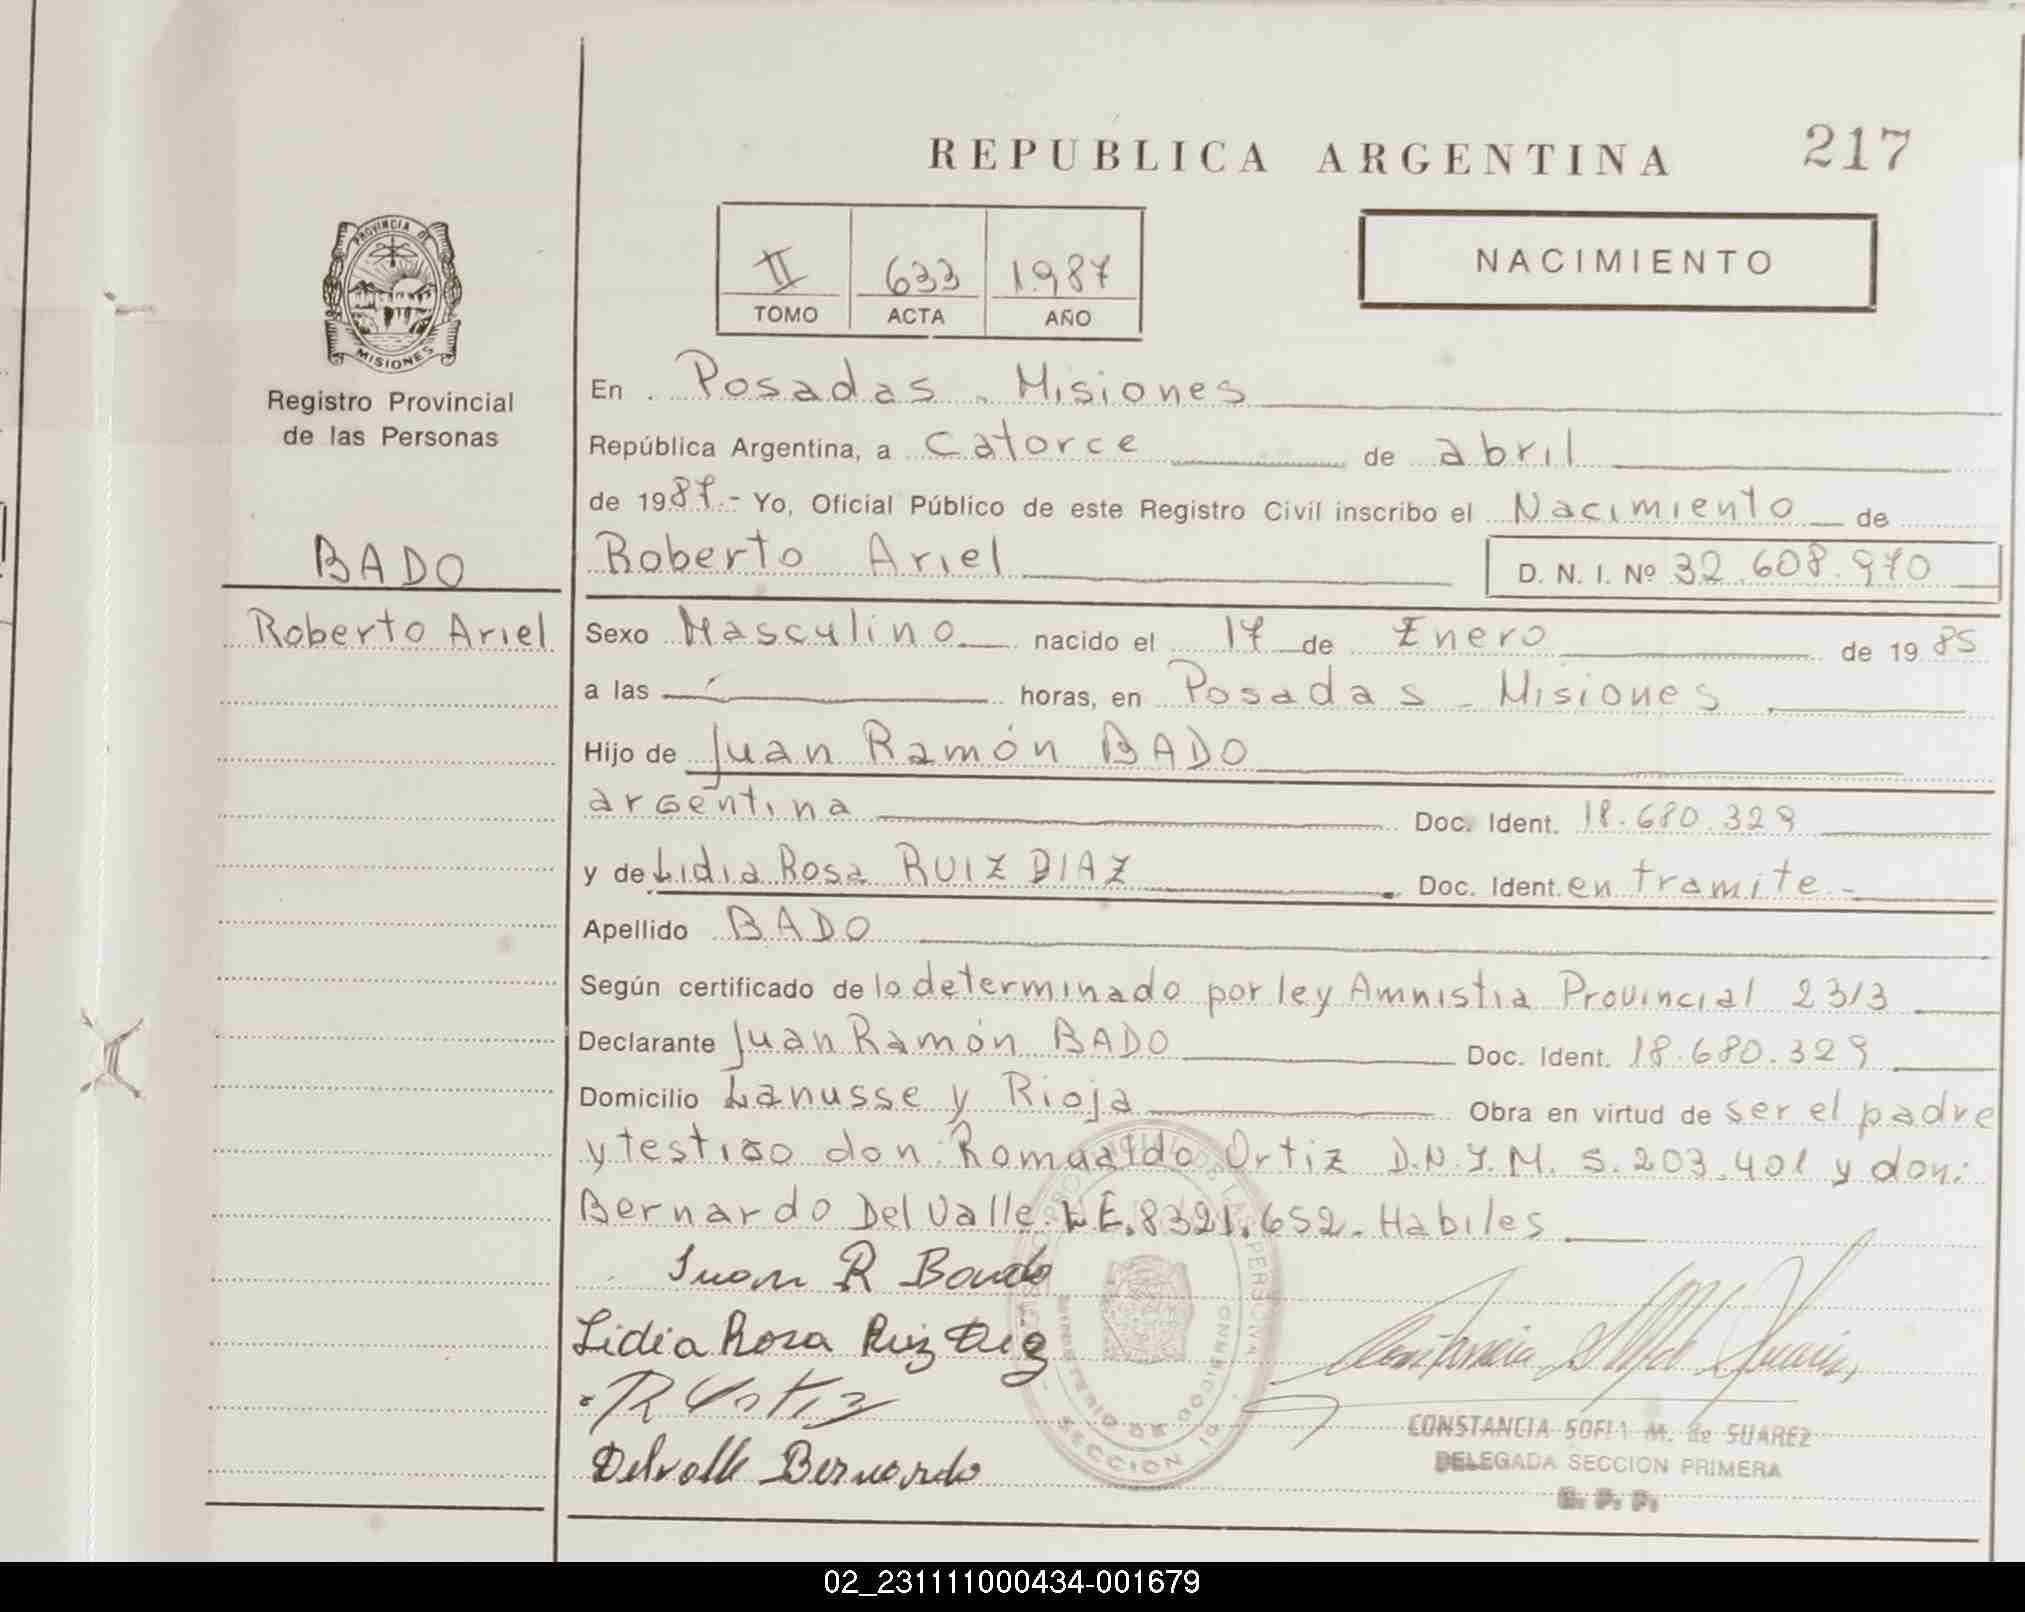 REPUBLICA ARGENTINA
217
NACIMIENTO
II 633 1.987
TOMO ACTA AÑO
PROVINCIA DE
MISIONES
Registro Provincial
de las Personas
BADO
Roberto Ariel
En Posadas - Misiones
República Argentina, a Catorce de abril
de 1987.- Yo, Oficial Público de este Registro Civil inscribo el Nacimiento de
Roberto Ariel D. N. I. Nº 32.608.970
Sexo Masculino nacido el 17 de Enero de 1985
a las horas, en Posadas - Misiones
Hijo de Juan Ramón BADO
argentina Doc. Ident. 18.680.329
y de Lidia Rosa RUIZ DIAZ Doc. Ident. en tramite -
Apellido BADO
Según certificado de lo determinado por ley Amnistia Provincial 2313
Declarante Juan Ramón BADO Doc. Ident. 18.680.329
Domicilio Lanusse y Rioja Obra en virtud de ser el padre
y testigo don: Romualdo Ortiz D.N.Y.M. 5.203.401 y don:
Bernardo Del Valle L.E. 8321.652. Habiles
Juan R Bado
Lidia Rosa Ruiz Diaz
R Ortiz
Delvalle Bernardo
SECCION 1a
CONSTANCIA SOFIA M. de SUAREZ
DELEGADA SECCION PRIMERA
R. P. P.
02_231111000434-001679